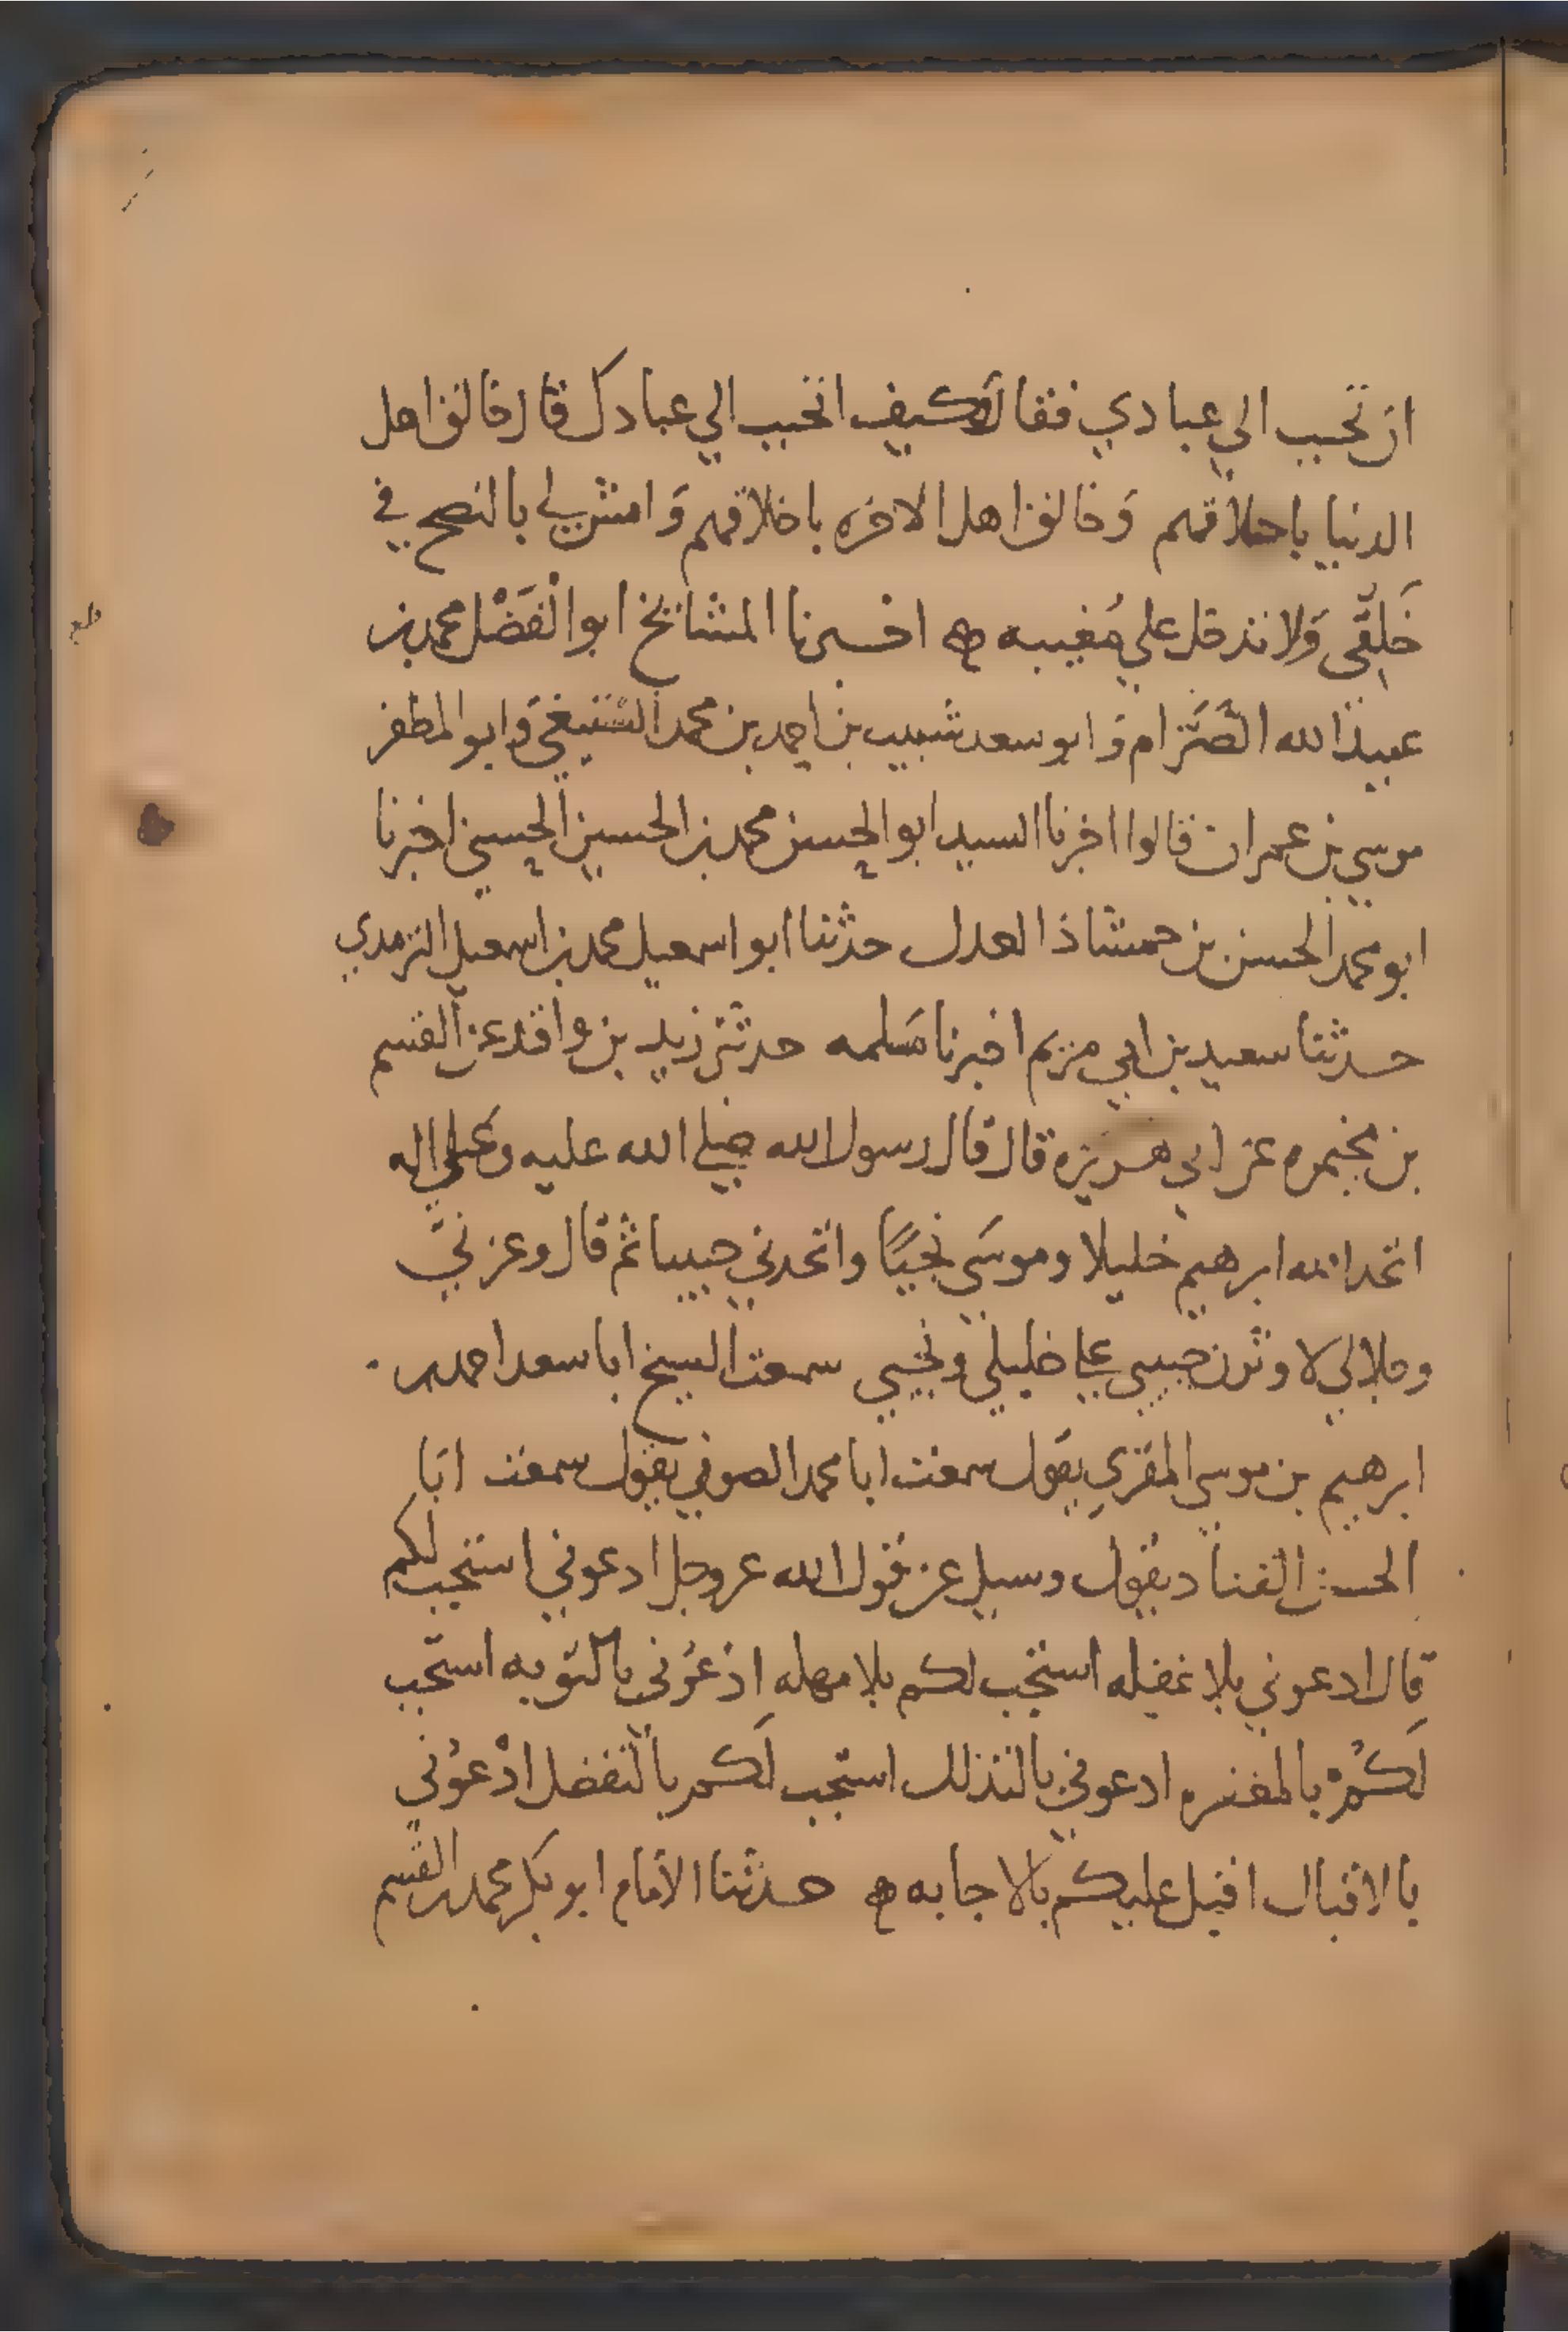 ان تحبب الي عبادي فقال وكيف اتحبب الي عبادك قال خالق اهل
الدنيا باخلاقهم وَخالق اهل الاخره باخلاقهم وَامش لي بالنصح في
خَلِقي وَلا تدخل علي مُغيبه ه اخبرنا المشايخ ابو الْفَضْل محمد بن
عبيد الله الصَّرَّام وَابو سعد شبيب بن احمد بن محمد البستيغي وَابو المظفر
موسي بن عمران قالوا اخبرنا السيد ابو الحسن محمد بن الحسين الحسني اخبرنا
ابو محمد الحسن بن حمشاذ العدل حدثنا ابو اسمعيل محمد بن اسمعيل الترمدي
حدثنا سعيد بن ابي مريم اخبرنا مَسلمه حدثني زيد بن واقد عن القسم
بن مخيمره عن ابي هريره قال قال رسول الله صلي الله عليه وَعلي اله
اتخد الله ابرهيم خليلا وموسَي نجيًا واتخدني حبيبا ثم قال وعزتي
وجلالي لاوثرن حبيبي علي خليلي ونجيي سمعت الشيخ ابا سعد احمد بن
ابرهيم بن موسي المقري يقول سمعت ابا محمد الصوفي يقول سمعت ابا
الحسن القناد يقول وسيل عن قول الله عز وجل ادعوني استجب لكم
قال ادعوني بلا غفله استجب لكم بلا مهله ادْعُوني بالتوبه استجب
لَكُمْ بالمغفره ادعوني بالتذلل استجب لَكم بالتفضل ادْعوُني
بالاقبال اقبل عليكم بالاجابه ه حدثنا الامام ابو بكر محمد بن القسم